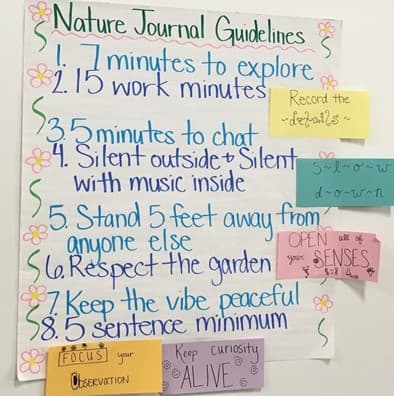 Nature Journal Guidelines
1. 7 minutes to explore
2. 15 work minutes
Record the
~details~
3. 5 minutes to chat
4. Silent outside + Silent
with music inside
s~l~o~w
d~o~w~n
5. Stand 5 feet away from
anyone else
OPEN all of
your SENSES
6. Respect the garden
7. Keep the vibe peaceful
8. 5 sentence minimum
FOCUS your
OBSERVATION
Keep curiosity
ALIVE